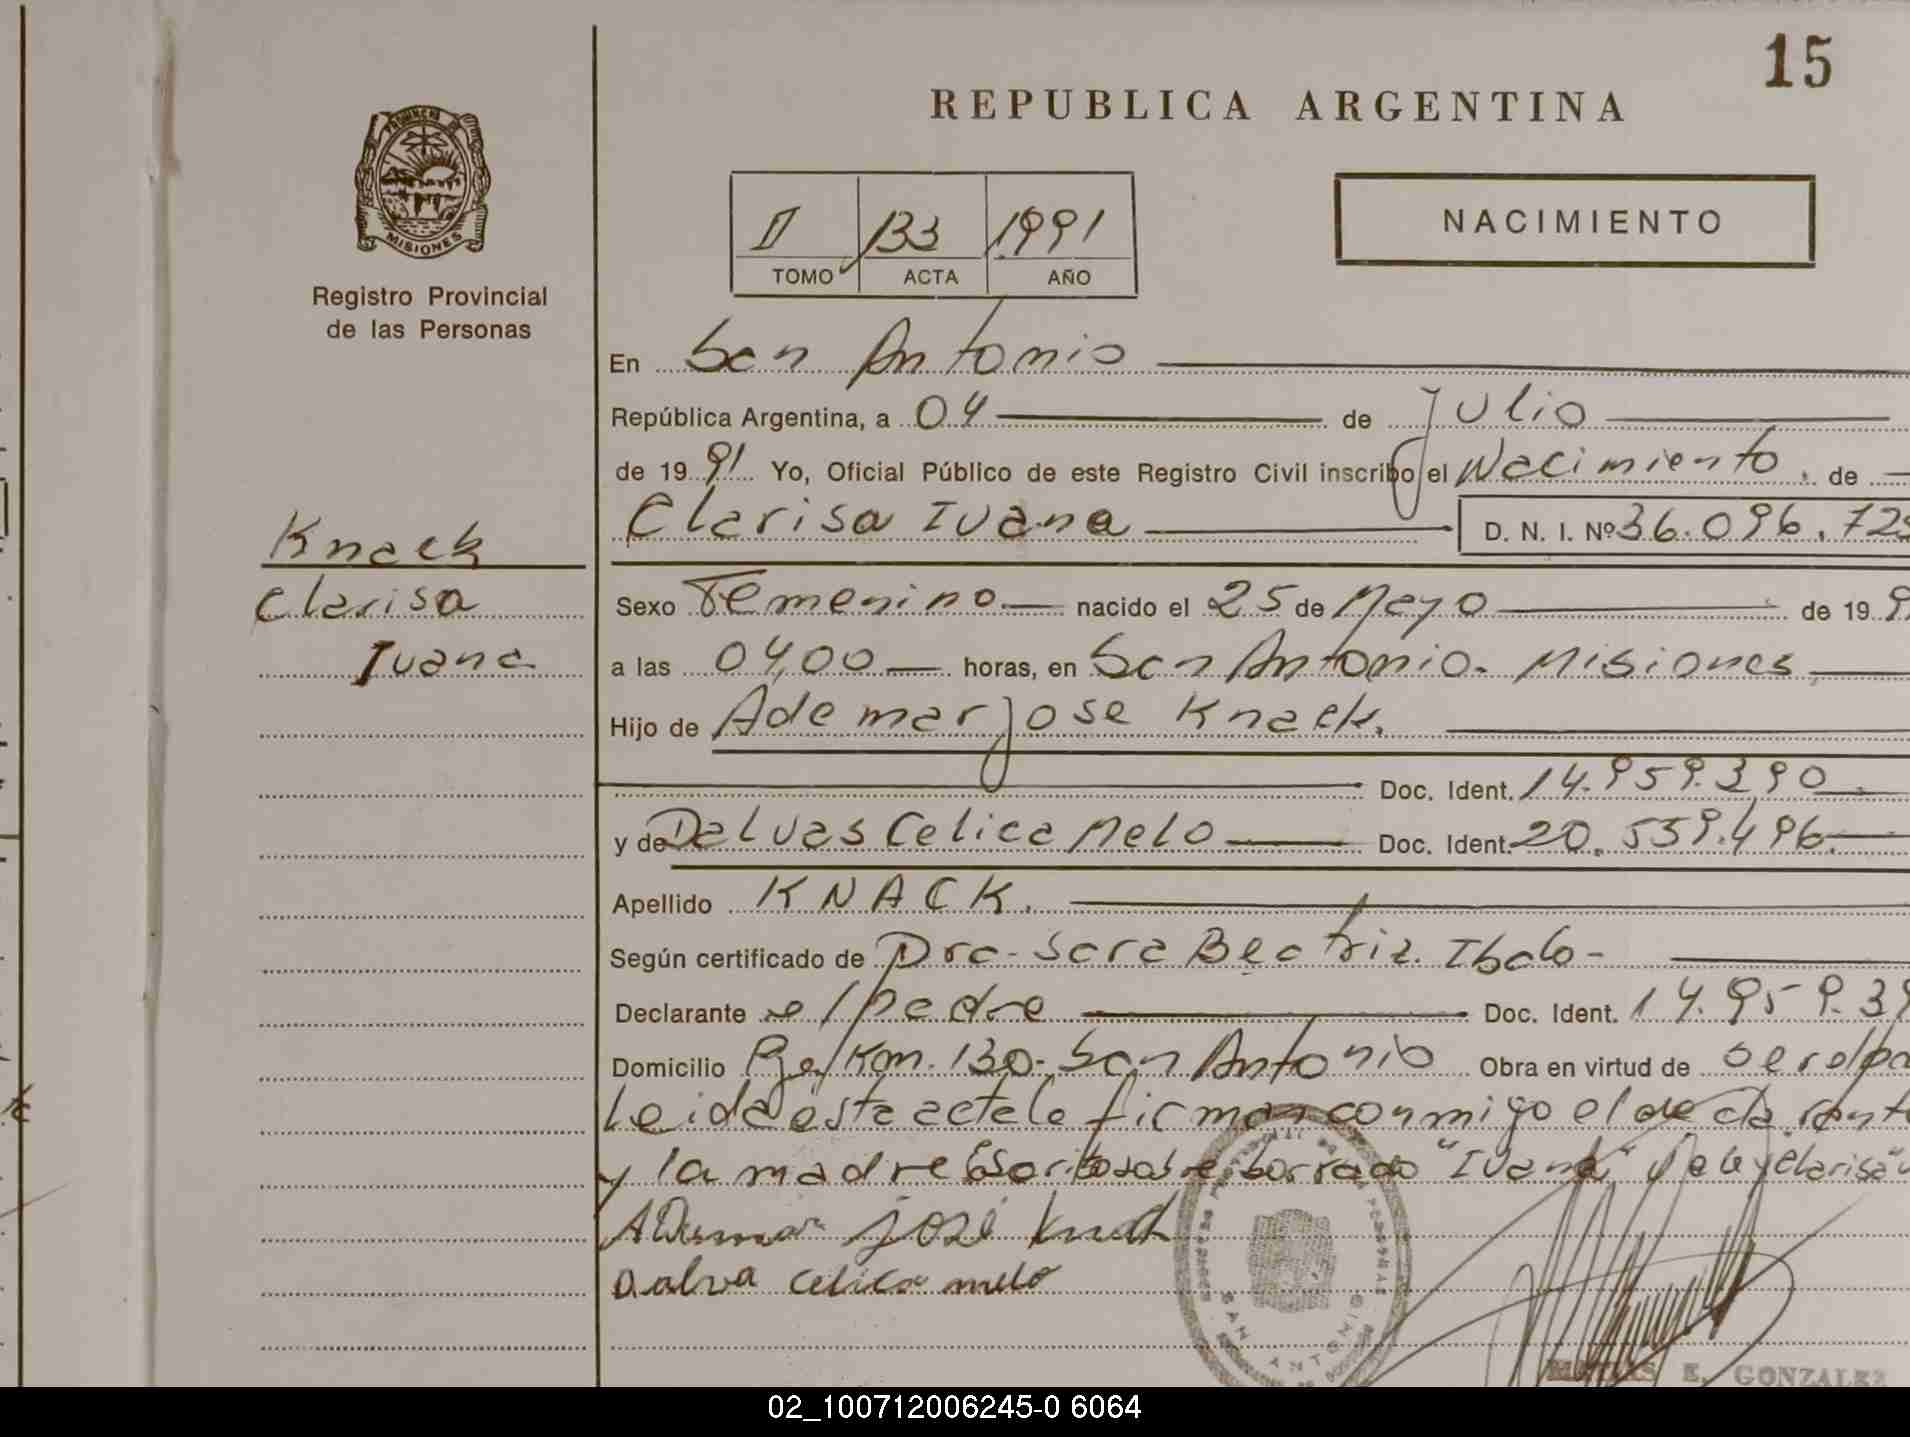 15
REPUBLICA ARGENTINA
PROVINCIA DE
MISIONES
Registro Provincial
de las Personas
II 133 1991
TOMO ACTA AÑO
NACIMIENTO
En San Antonio
República Argentina, a 04 de Julio
de 1991 Yo, Oficial Público de este Registro Civil inscribo el Nacimiento de
Clarisa Ivana D. N. I. Nº 36.096.72
Knack
Clarisa
Ivana
Sexo Femenino nacido el 25 de Mayo de 199
a las 04,00 horas, en San Antonio - Misiones
Hijo de Ademar Jose Knack.
Doc. Ident. 14.959.390
y de Dalvas Celica Melo Doc. Ident. 20.559.496.
Apellido KNACK.
Según certificado de Dra. Sara Beatriz Ibalo -
Declarante el padre Doc. Ident. 14.959.39
Domicilio Pje. Km. 130. San Antonio Obra en virtud de ser el pa
Leida esta acta la firman conmigo el declarante
y la madre Escrito sobre borrado "Ivana" Vale y Clarisa"
Ademar José Knack
Dalva Celica Melo
SAN ANTONIO
E. GONZALEZ
02_100712006245-0 6064